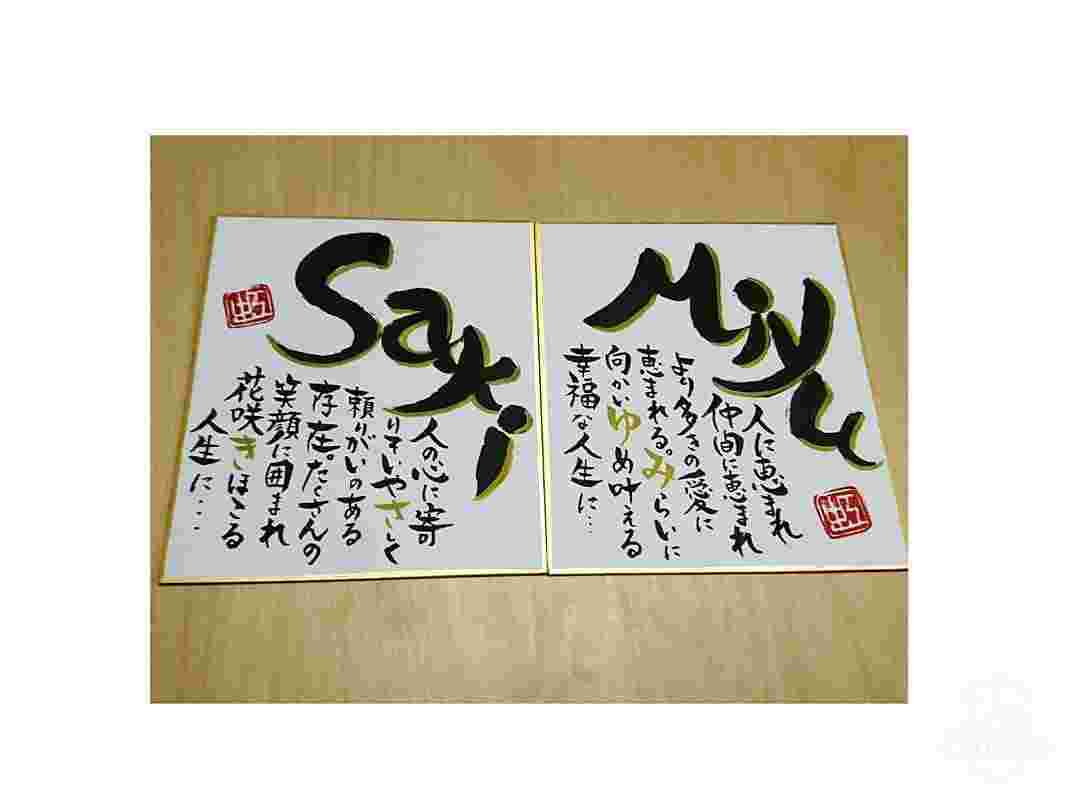 Saki
人の心に寄
りそいやさしく
頼りがいのある
存在。たくさんの
笑顔に囲まれ
花咲きほこる
人生に・・・
Miyu
人に恵まれ
仲間に恵まれ
より多きの愛に
恵まれる。みらいに
向かいゆめ叶える
幸福な人生に…